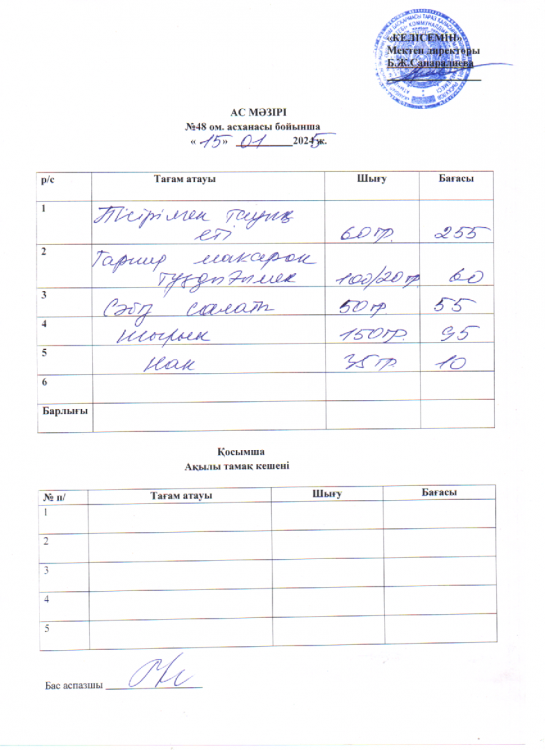 «КЕЛІСЕМІН»
Мектеп директоры
Б.Ж.Сапаралиева
АС МӘЗІРІ
№48 ом. асханасы бойынша
« 15 » 01 2025 ж.
р/с Тағам атауы Шығу Бағасы
1 Пісірілген тауық
еті 60гр. 255
2 Гарнир макарон
тұздығымен 100/20гр 60
3 Сәбіз салат 50гр 55
4 Шырын 150гр. 95
5 Нан 35гр. 10
6
Барлығы
Қосымша
Ақылы тамақ кешені
№ п/ Тағам атауы Шығу Бағасы
1
2
3
4
5
Бас аспазшы